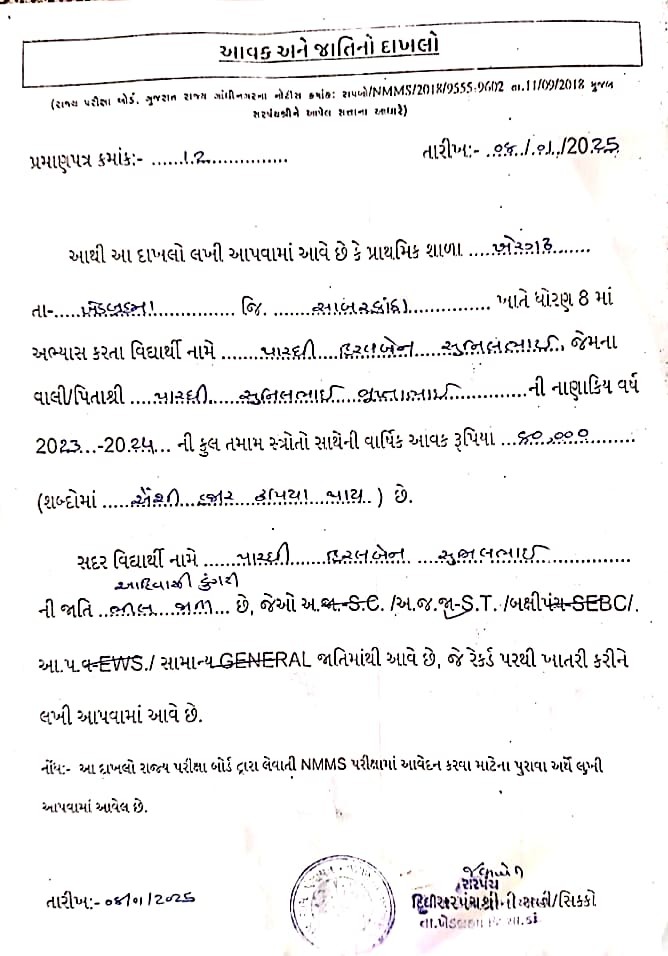 આવક અને જાતિનો દાખલો
(રાજ્ય પરીક્ષા બોર્ડ, ગુજરાત રાજ્ય ગાંધીનગરના નોટીસ ક્રમાંક: રાપબો/NMMS/2018/9555-9602 તા.11/09/2018 મુજબ
સરપંચશ્રીને આપેલ સત્તાના આધારે)
પ્રમાણપત્ર ક્રમાંક:- ......12..............
તારીખ:- .04./.01./2025
આથી આ દાખલો લખી આપવામાં આવે છે કે પ્રાથમિક શાળા ...ખેરગઢ......
તા-....ખેડબ્રહ્મા................ જિ. ......સાબરકાંઠા............. ખાતે ધોરણ 8 માં
અભ્યાસ કરતા વિદ્યાર્થી નામે ......પારઘી....હિરલબેન....સુનિલભાઈ, જેમના
વાલી/પિતાશ્રી ...પારઘી....સુનિલભાઈ...............ની નાણાકિય વર્ષ
2023...-2024... ની કુલ તમામ સ્ત્રોતો સાથેની વાર્ષિક આવક રૂપિયા ...80,000........
(શબ્દોમાં ....એંશી હજાર રૂપિયા..... ) છે.
સદર વિદ્યાર્થી નામે .....પારઘી.....હિરલબેન...સુનિલભાઈ............
આદિવાસી ડુંગરી
ની જાતિ ..ભીલ... છે, જેઓ અ.જા-S.C. /અ.જ.જા-S.T. /બક્ષીપંચ-SEBC/.
આ.પ.વ-EWS./ સામાન્ય GENERAL જાતિમાંથી આવે છે, જે રેકર્ડ પરથી ખાતરી કરીને
લખી આપવામાં આવે છે.
નોંધ:- આ દાખલો રાજ્ય પરીક્ષા બોર્ડ દ્વારા લેવાતી NMMS પરીક્ષામાં આવેદન કરવા માટેના પુરાવા અર્થે લખી
આપવામાં આવેલ છે.
તારીખ:-04/01/2025
સરપંચ
સરપંચશ્રીની સહી/સિક્કો